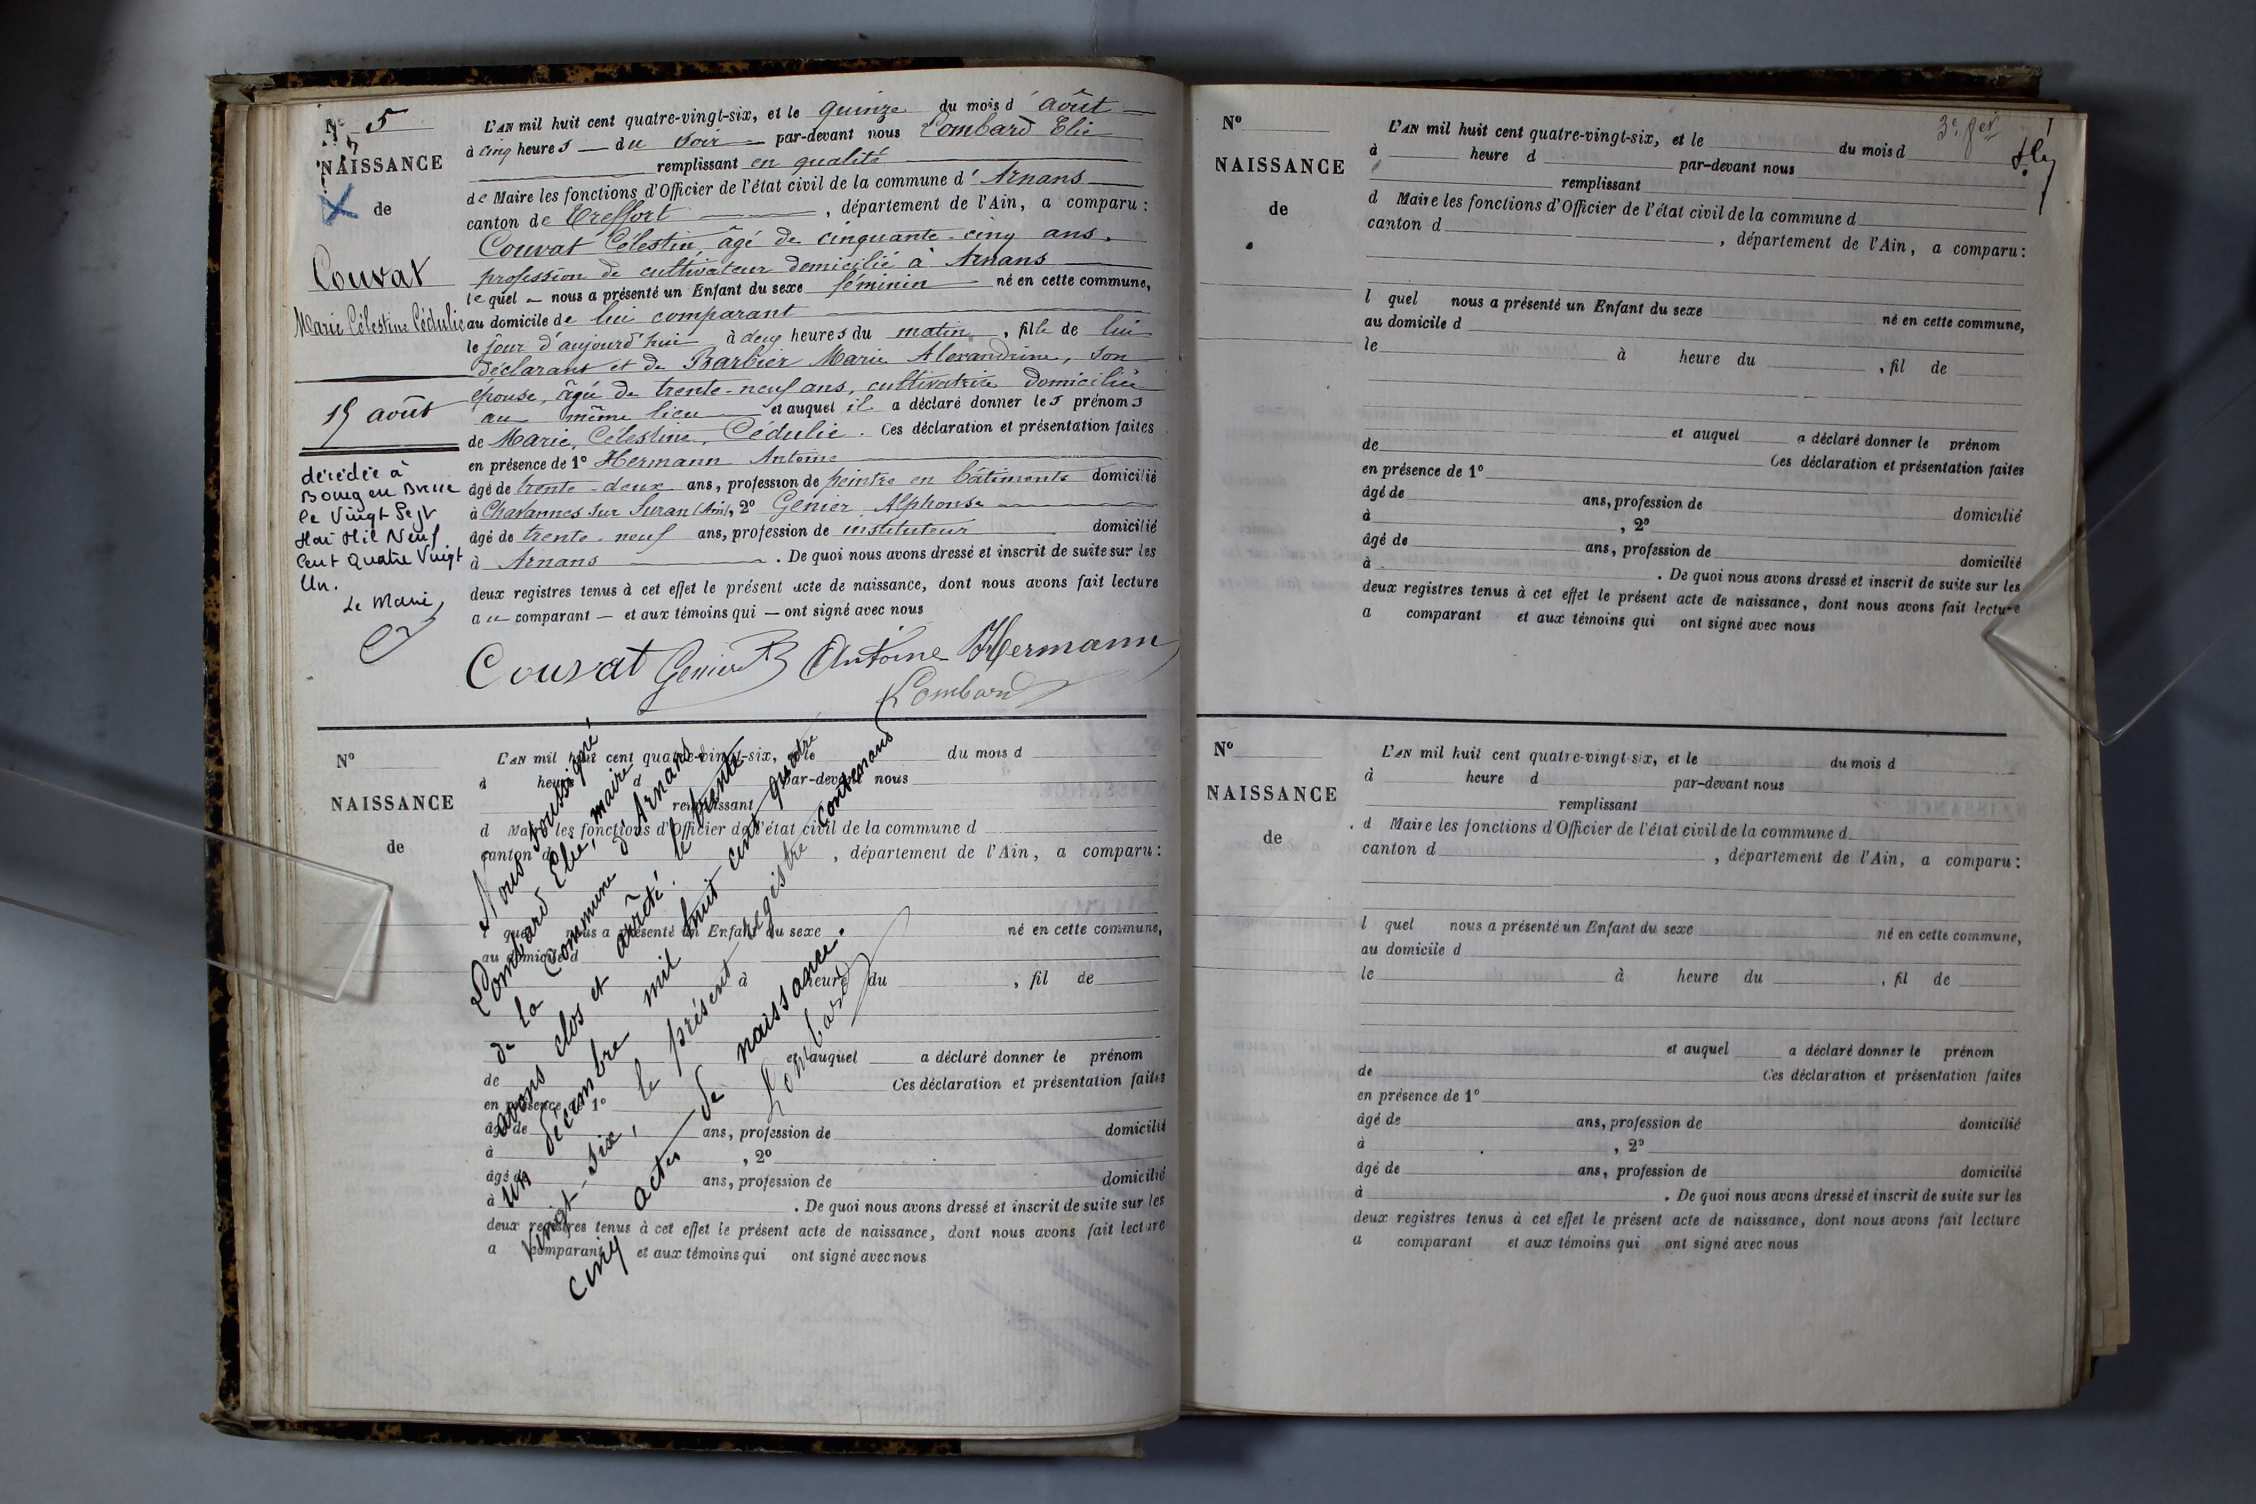 N° 5
NAISSANCE
de
Couvat
Marie Célestine Cédulie
15 août
décédée à
Bourg en Bresse
le Vingt Sept
Mai Mil Neuf
Cent Quatre Vingt
Un.
Le Maire
L'AN mil huit cent quatre-vingt-six, et le quinze du mois d'août
à cinq heures du soir par-devant nous Lombard Elie
remplissant en qualité
de Maire les fonctions d'Officier de l'état civil de la commune d'Arnans
canton de Treffort, département de l'Ain, a comparu :
Couvat Célestin, âgé de cinquante-cinq ans,
profession de cultivateur domicilié à Arnans
lequel nous a présenté un Enfant du sexe féminin né en cette commune,
au domicile de lui comparant
le jour d'aujourd'hui à deux heures du matin, fille de lui
déclarant et de Barbier Marie Alexandrine, son
épouse, âgée de trente-neuf ans, cultivatrice domiciliée
au même lieu et auquel il a déclaré donner les prénoms
de Marie, Célestine, Cédulie. Ces déclaration et présentation faites
en présence de 1° Hermann Antoine
âgé de trente-deux ans, profession de peintre en bâtiments domicilié
à Chavannes sur Suran (Ain), 2° Genier Alphonse
âgé de trente-neuf ans, profession de instituteur domicilié
à Arnans. De quoi nous avons dressé et inscrit de suite sur les
deux registres tenus à cet effet le présent acte de naissance, dont nous avons fait lecture
au comparant et aux témoins qui ont signé avec nous
Couvat Genier Antoine Hermann
Lombard
N°
NAISSANCE
de
L'AN mil huit cent quatre-vingt-six, et le du mois d
à heure d par-devant nous
remplissant
d Maire les fonctions d'Officier de l'état civil de la commune d
canton d , département de l'Ain, a comparu :
l quel nous a présenté un Enfant du sexe né en cette commune,
au domicile d
à heure du , fil de
et auquel a déclaré donner le prénom
de Ces déclaration et présentation faites
en présence de 1°
âgé de ans, profession de domicilié
à , 2°
âgé de ans, profession de domicilié
à . De quoi nous avons dressé et inscrit de suite sur les
deux registres tenus à cet effet le présent acte de naissance, dont nous avons fait lecture
a comparant et aux témoins qui ont signé avec nous
Nous soussigné
Lombard Elie, maire
de la Commune d'Arnans
avons clos et arrêté le trente
un décembre mil huit cent quatre
vingt-six, le présent registre contenant
cinq actes de naissance.
Lombard
3e. fer
N°
NAISSANCE
de
L'AN mil huit cent quatre-vingt-six, et le du mois d
à heure d par-devant nous
remplissant
d Maire les fonctions d'Officier de l'état civil de la commune d
canton d , département de l'Ain, a comparu :
l quel nous a présenté un Enfant du sexe né en cette commune,
au domicile d
le à heure du , fil de
et auquel a déclaré donner le prénom
de Ces déclaration et présentation faites
en présence de 1°
âgé de ans, profession de domicilié
à , 2°
âgé de ans, profession de domicilié
à . De quoi nous avons dressé et inscrit de suite sur les
deux registres tenus à cet effet le présent acte de naissance, dont nous avons fait lecture
a comparant et aux témoins qui ont signé avec nous
N°
NAISSANCE
de
L'AN mil huit cent quatre-vingt-six, et le du mois d
à heure d par-devant nous
remplissant
d Maire les fonctions d'Officier de l'état civil de la commune d
canton d , département de l'Ain, a comparu :
l quel nous a présenté un Enfant du sexe né en cette commune,
au domicile d
le à heure du , fil de
et auquel a déclaré donner le prénom
de Ces déclaration et présentation faites
en présence de 1°
âgé de ans, profession de domicilié
à , 2°
âgé de ans, profession de domicilié
à . De quoi nous avons dressé et inscrit de suite sur les
deux registres tenus à cet effet le présent acte de naissance, dont nous avons fait lecture
a comparant et aux témoins qui ont signé avec nous